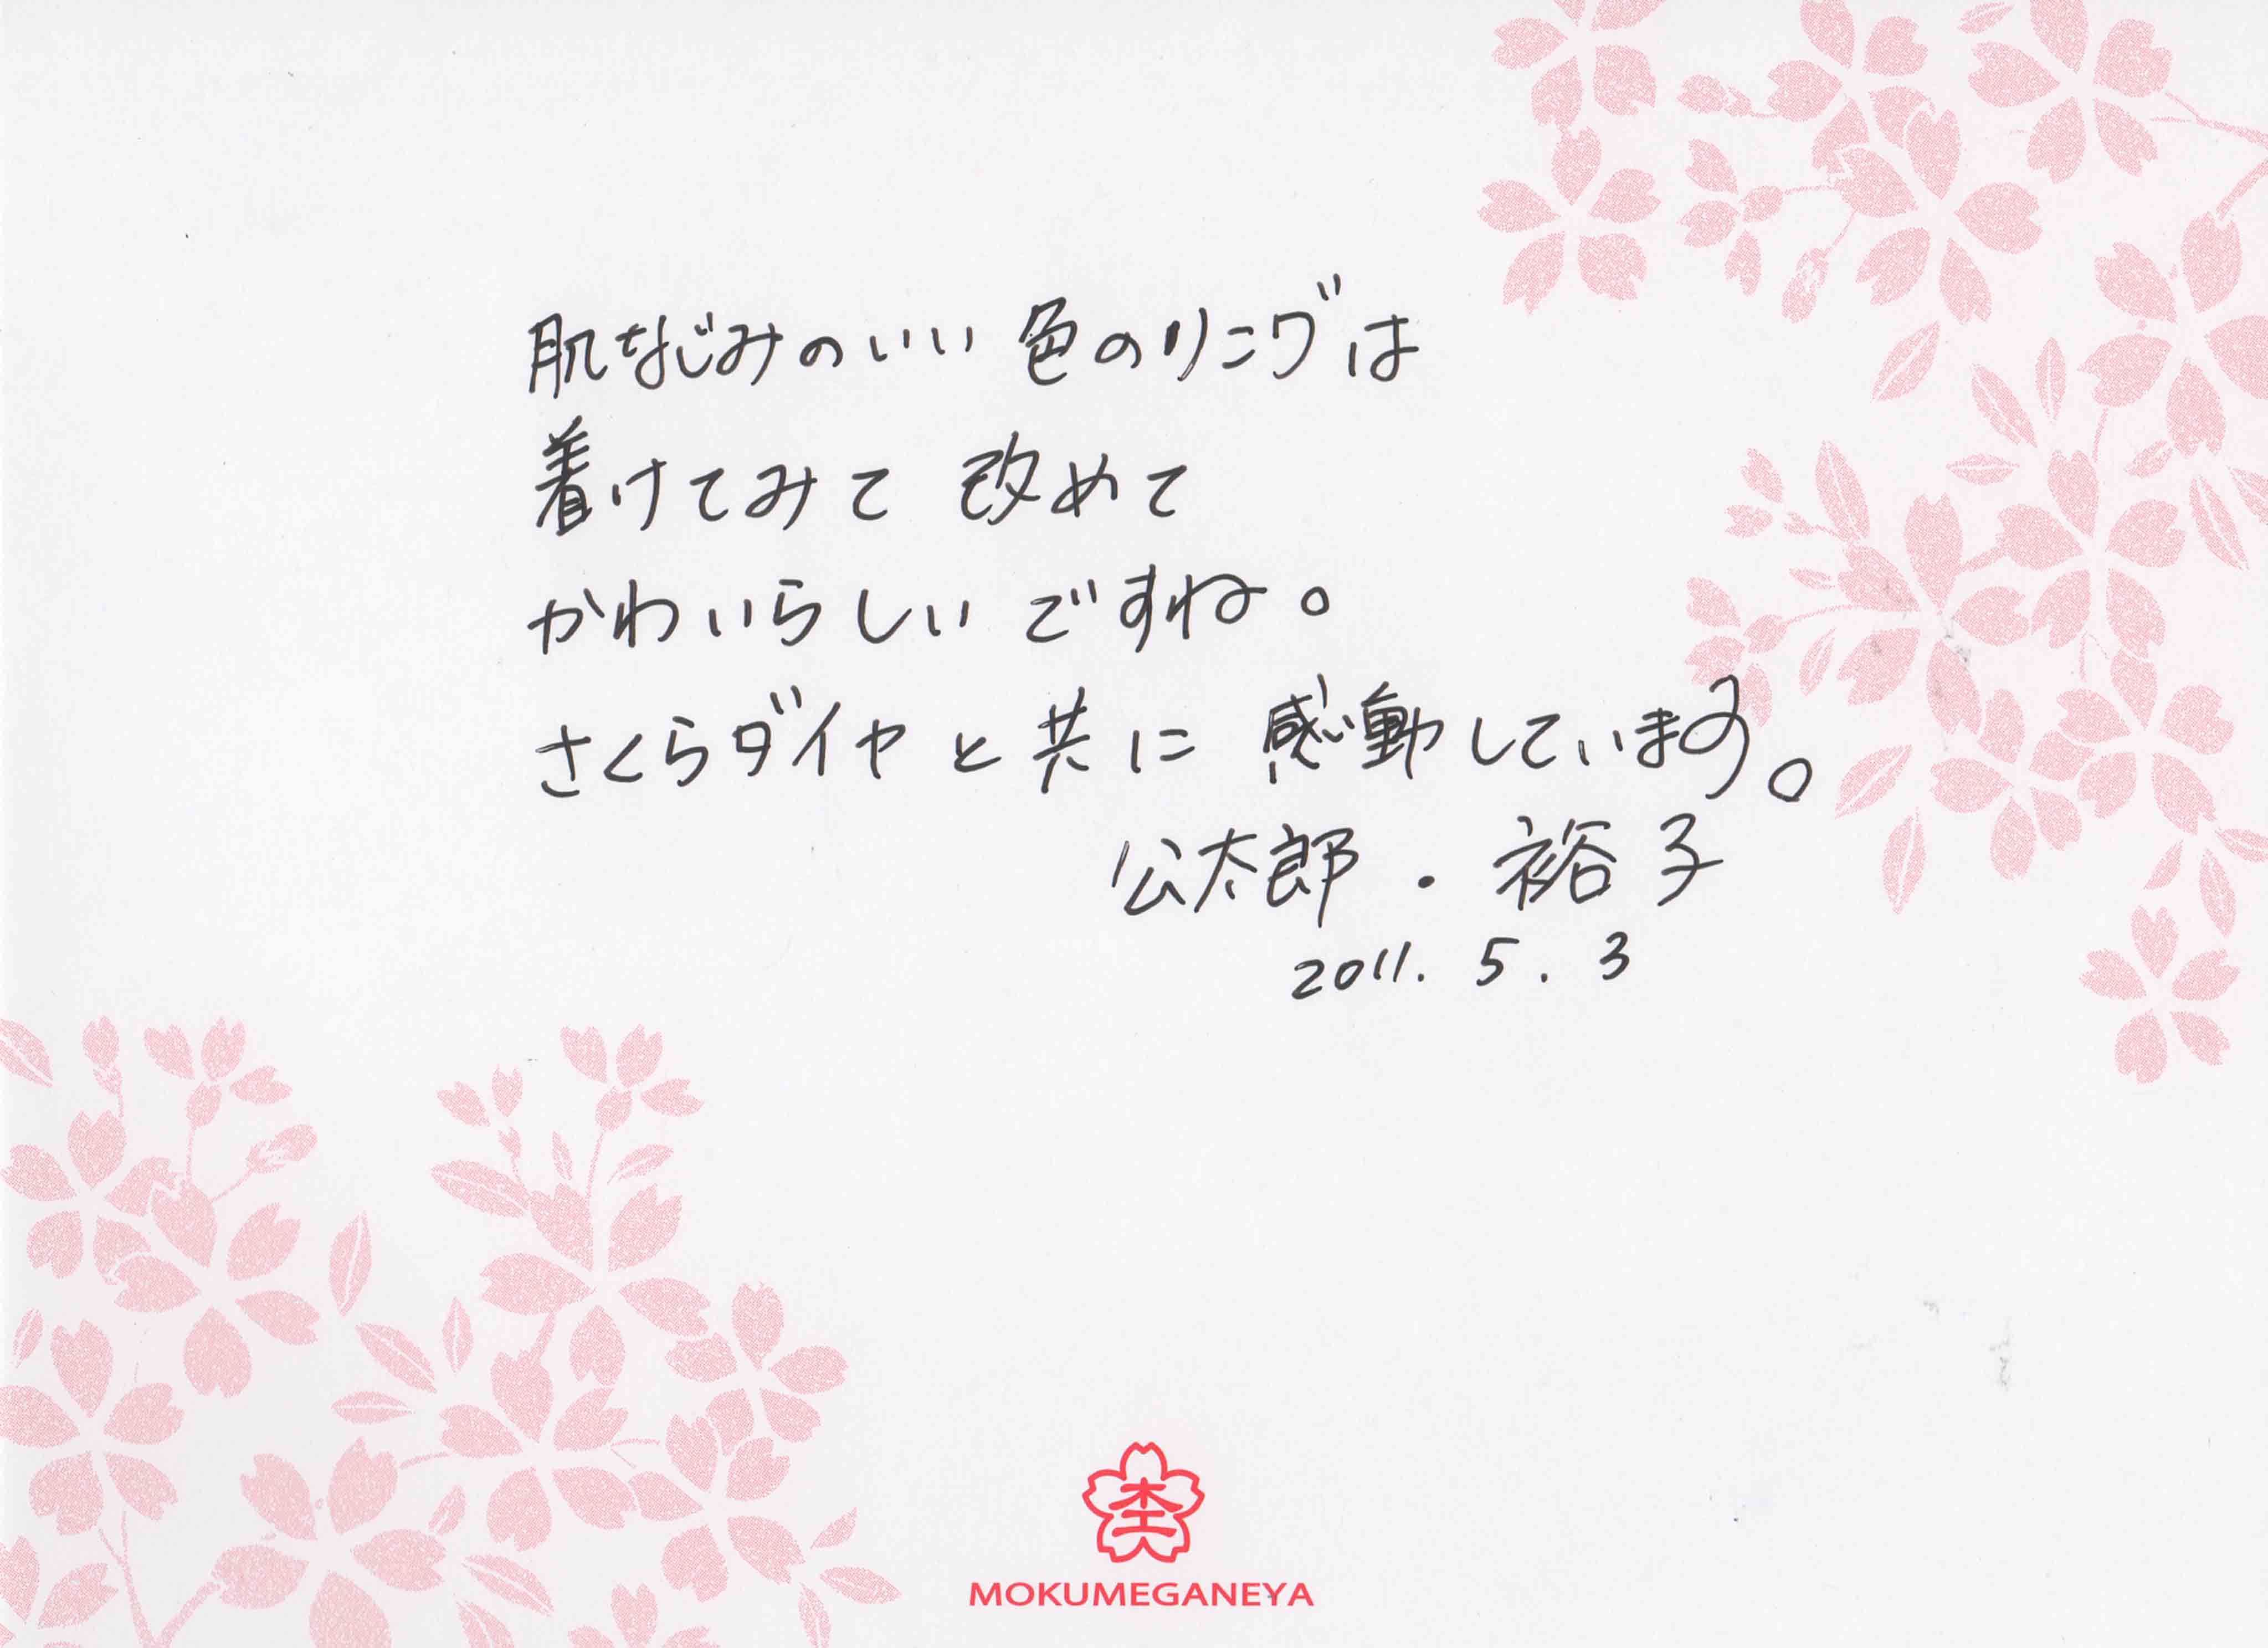 肌なじみのいい 色のリングは
着けてみて 改めて
かわいらしいですね。
さくらダイヤと共に 感動しています。
公太郎・裕子
2011. 5. 3
杢
MOKUMEGANEYA